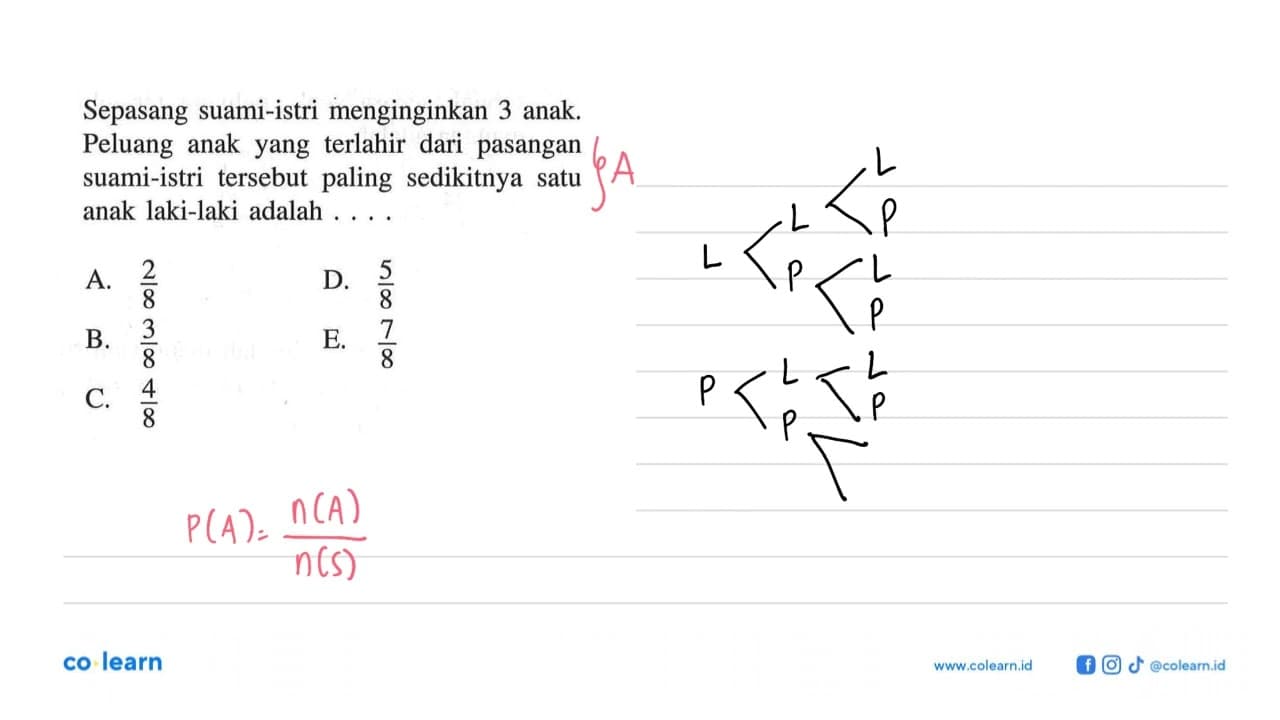 Sepasang suami-istri menginginkan 3 anak.
Peluang anak yang terlahir dari pasangan
suami-istri tersebut paling sedikitnya satu
anak laki-laki adalah . . . .
A
A. 2/8 D. 5/8
B. 3/8 E. 7/8
C. 4/8
L
L
P
L
P
L
P
P
L
L
P
P
P(A) = n(A)/n(S)
co learn
www.colearn.id @colearn.id